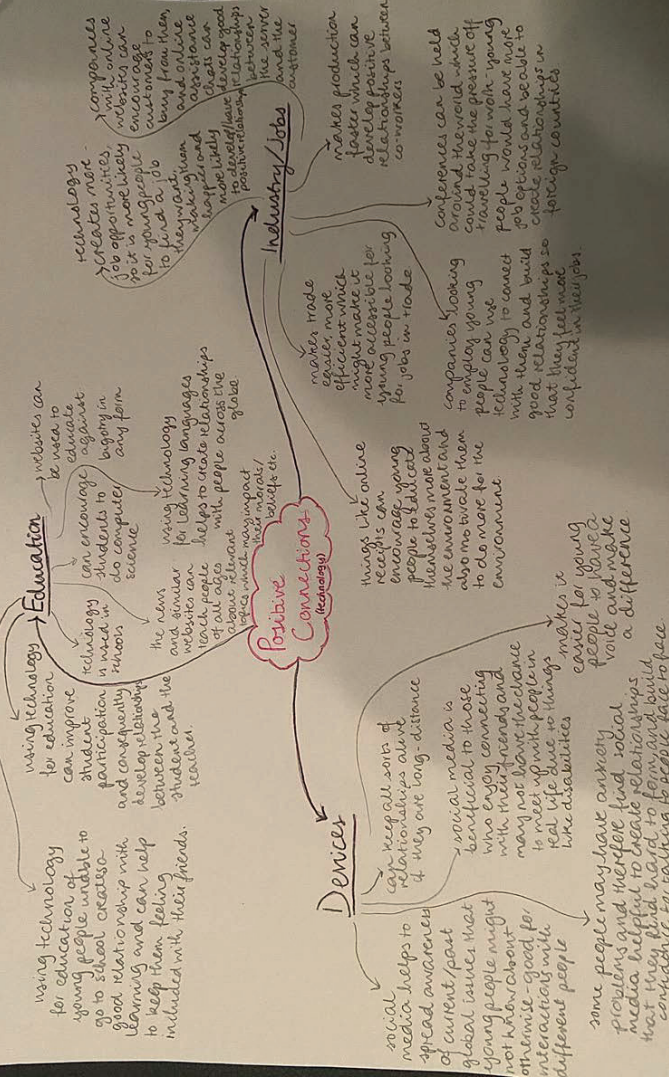 Positive
Connections
(technology)
Education
using technology
for education of
young people unable to
go to school creates a
good relationship with
learning and can help
to keep them feeling
included with their friends.
using technology
for education
can improve
student
participation
and consequently
develop relationships
between the
student and the
teacher.
technology
is used in
schools
can encourage
students to
do computer
science
websites can
be used to
educate
against
bigotry in
any form
the news
and similar
websites can
teach people
of all ages
about relevant
topics which may impact
their morals/
beliefs etc.
using technology
for learning languages
helps to create relationships
with people across the
globe.
Industry/jobs
technology
creates more
job opportunities,
so it is more likely
for young people
to find a job
they want,
making them
happier and
more likely
to develop/have
positive relationships
companies
with online
websites can
encourage
customers to
buy from them
and online
assistance
chats can
develop good
relationships
between
the server
and the
customer
makes production
faster which can
develop positive
relationships between
co-workers
conferences can be held
around the world which
could take the pressure off
travelling for work - young
people would have more
job options and be able to
create relationships in
foreign countries
makes trade
easier, more
efficient which
might make it
more accessible for
young people looking
for jobs in trade
companies looking
to employ young
people can use
technology to connect
with them and build
good relationships so
that they feel more
confident in their jobs.
things like online
receipts can
encourage young
people to educate
themselves more about
the environment and
also motivate them
to do more for the
environment
Devices
social
media helps to
spread awareness
of current/past
global issues that
young people might
not know about
otherwise - good for
interactions with
different people
can keep all sorts of
relationships alive
if they are long-distance
social media is
beneficial to those
who enjoy connecting
with their friends and
may not have the chance
to meet up with people in
real life due to things
like disabilities
makes it
easier for young
people to have a
voice and make
a difference.
some people may have anxiety
problems and therefore find social
media helpful to create relationships
that they find hard to form and build
face to face